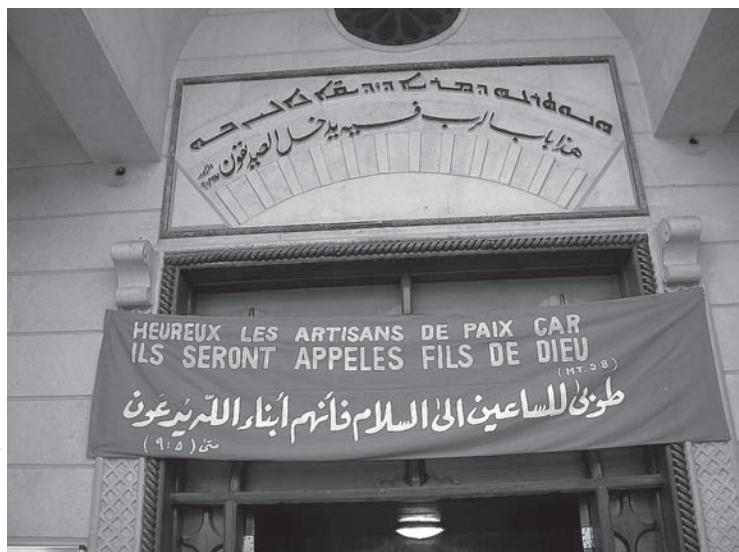 ܡܢܘ ܬܪܥܗ ܕܡܪܝܐ ܕܙܕܝܩܐ ܥܐܠܝܢ ܒܗ
هذا باب الرب فيه يدخل الصديقون
HEUREUX LES ARTISANS DE PAIX CAR
ILS SERONT APPELES FILS DE DIEU
(MT. 5:8)
طوبىٰ للساعين الىٰ السلام فأنهم أبناء اللّه يُدعَون
متىٰ (٩:٥)